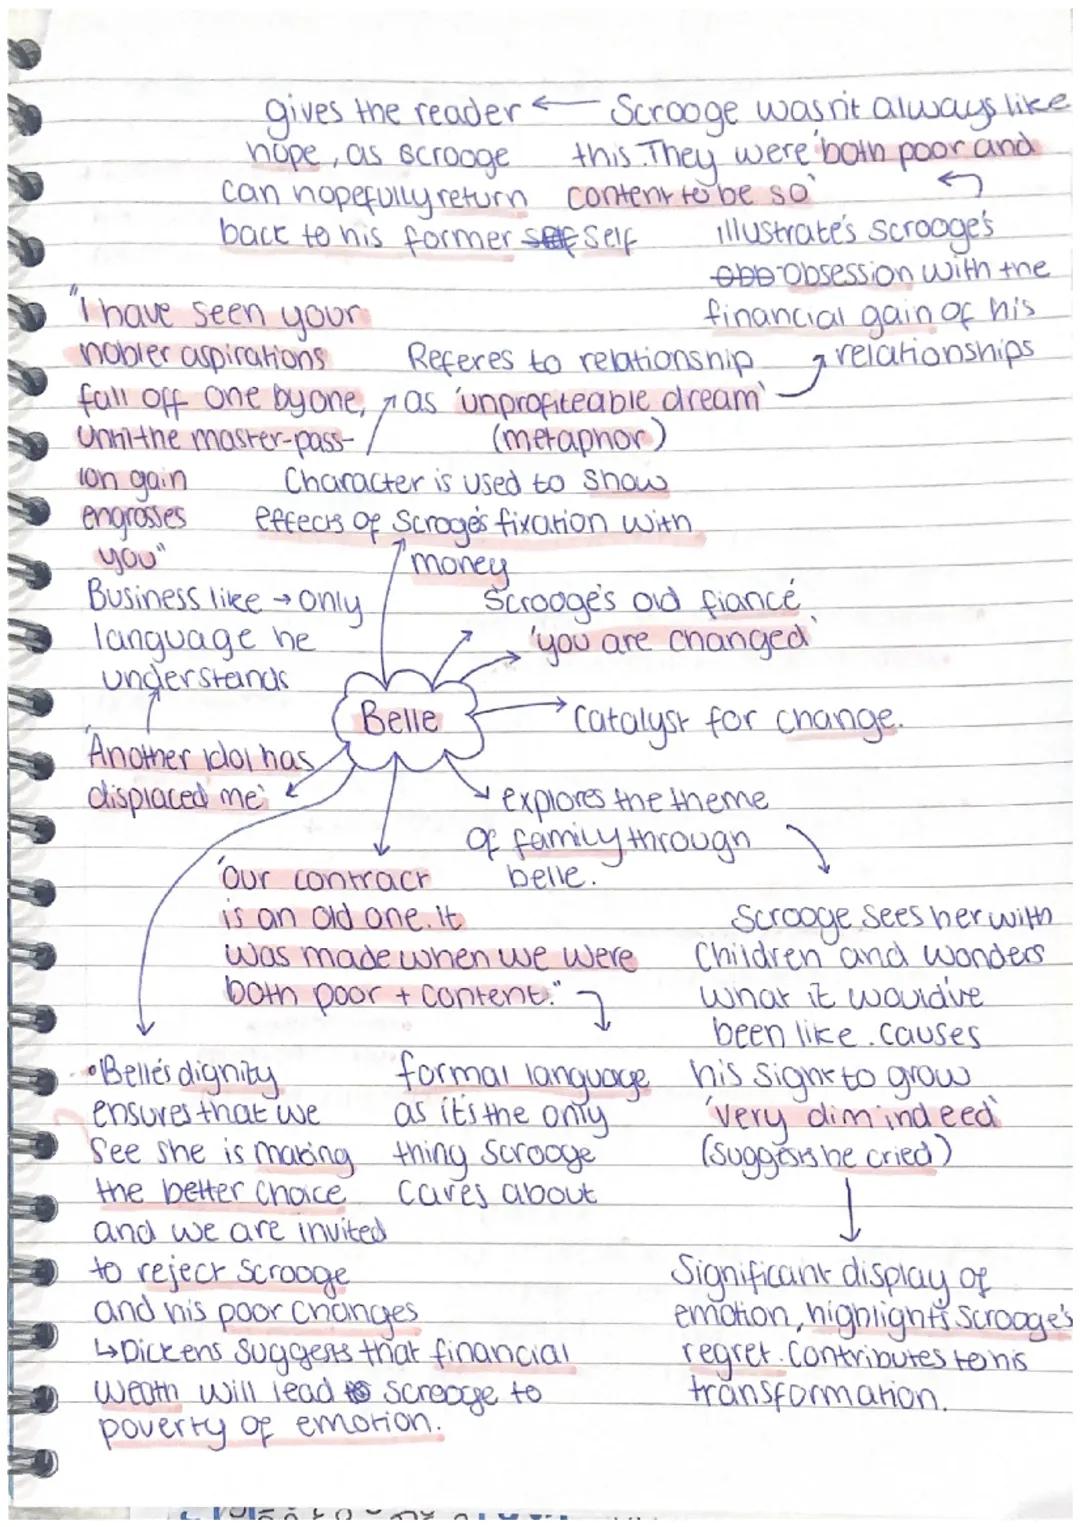 gives the reader ← Scrooge wasn't always like
hope, as scrooge this. They were 'both poor and
can hopefully return content to be so'
back to his former self
illustrate's scrooge's
obsession with the
financial gain of his
relationships
"I have seen your
nobler aspirations
fall off one by one,
until the master-pass-
ion gain
engrosses
you"
Referes to relationship
as 'unprofiteable dream'
(metaphor)
Character is used to show
effects of Scroge's fixation with
money
Business like → only
language he
understands
Scrooge's old fiancé
'you are changed'
Belle
Catalyst for change.
'Another idol has
displaced me'
explores the theme
of family through
belle.
'Our contract
is an old one. It
was made when we were
both poor + content."
Scrooge sees her with
Children and wonders
what it would've
been like. causes
his signt to grow
'very dim indeed'
(suggests he cried)
• Belle's dignity
ensures that we
see she is making
the better choice
and we are invited
to reject scrooge
and his poor changes
↳ Dickens suggests that financial
weath will lead to screoge to
poverty of emotion.
formal language
as it's the only
thing scrooge
cares about
Significant display of
emotion, highlights scrooge's
regret. Contributes to his
transformation.